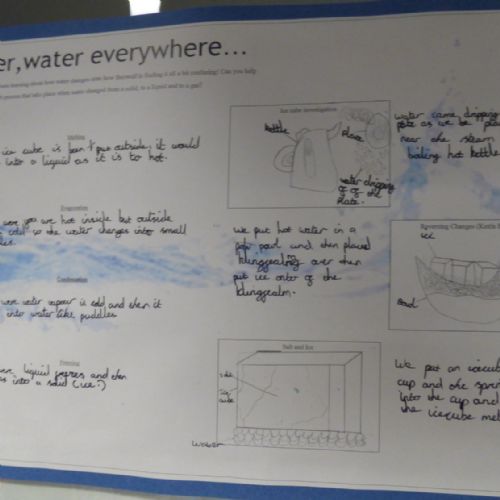 er, water everywhere...
been learning about how water changes state how Beowulf is finding it all a bit confusing! Can you help
process that take place when water changes from a solid, to a liquid and to a gas?
Melting
ice cube is put outside, it would
into a liquid as it is to hot.
Evaporation
we hot inside but outside
cold so the water changes into small
Condensation
were water vapour is cold and then it
into water like puddles
Freezing
were liquid freezes and then
into a solid (ice.)
Ice cube investigation
kettle
Plate
water dripping
of of the
Plate.
water came dripping
plate as we
near the steam
boiling hot kettle
we put hot water in a
and then placed
klingfealm over then
put ice onter of the
klingzealm.
Reversing Changes (Kettle
ice
Bowl
Salt and Ice
salt
ice
cube
water
We put an icecub
cup and the
into the cup and
the icecube mel